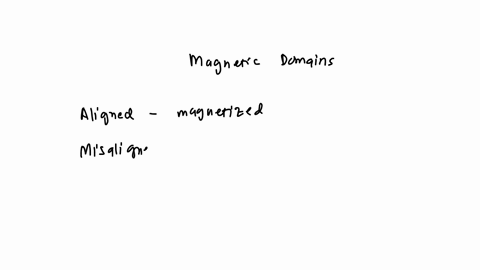 Magnetic Domains
Aligned - magnetized
Misalign